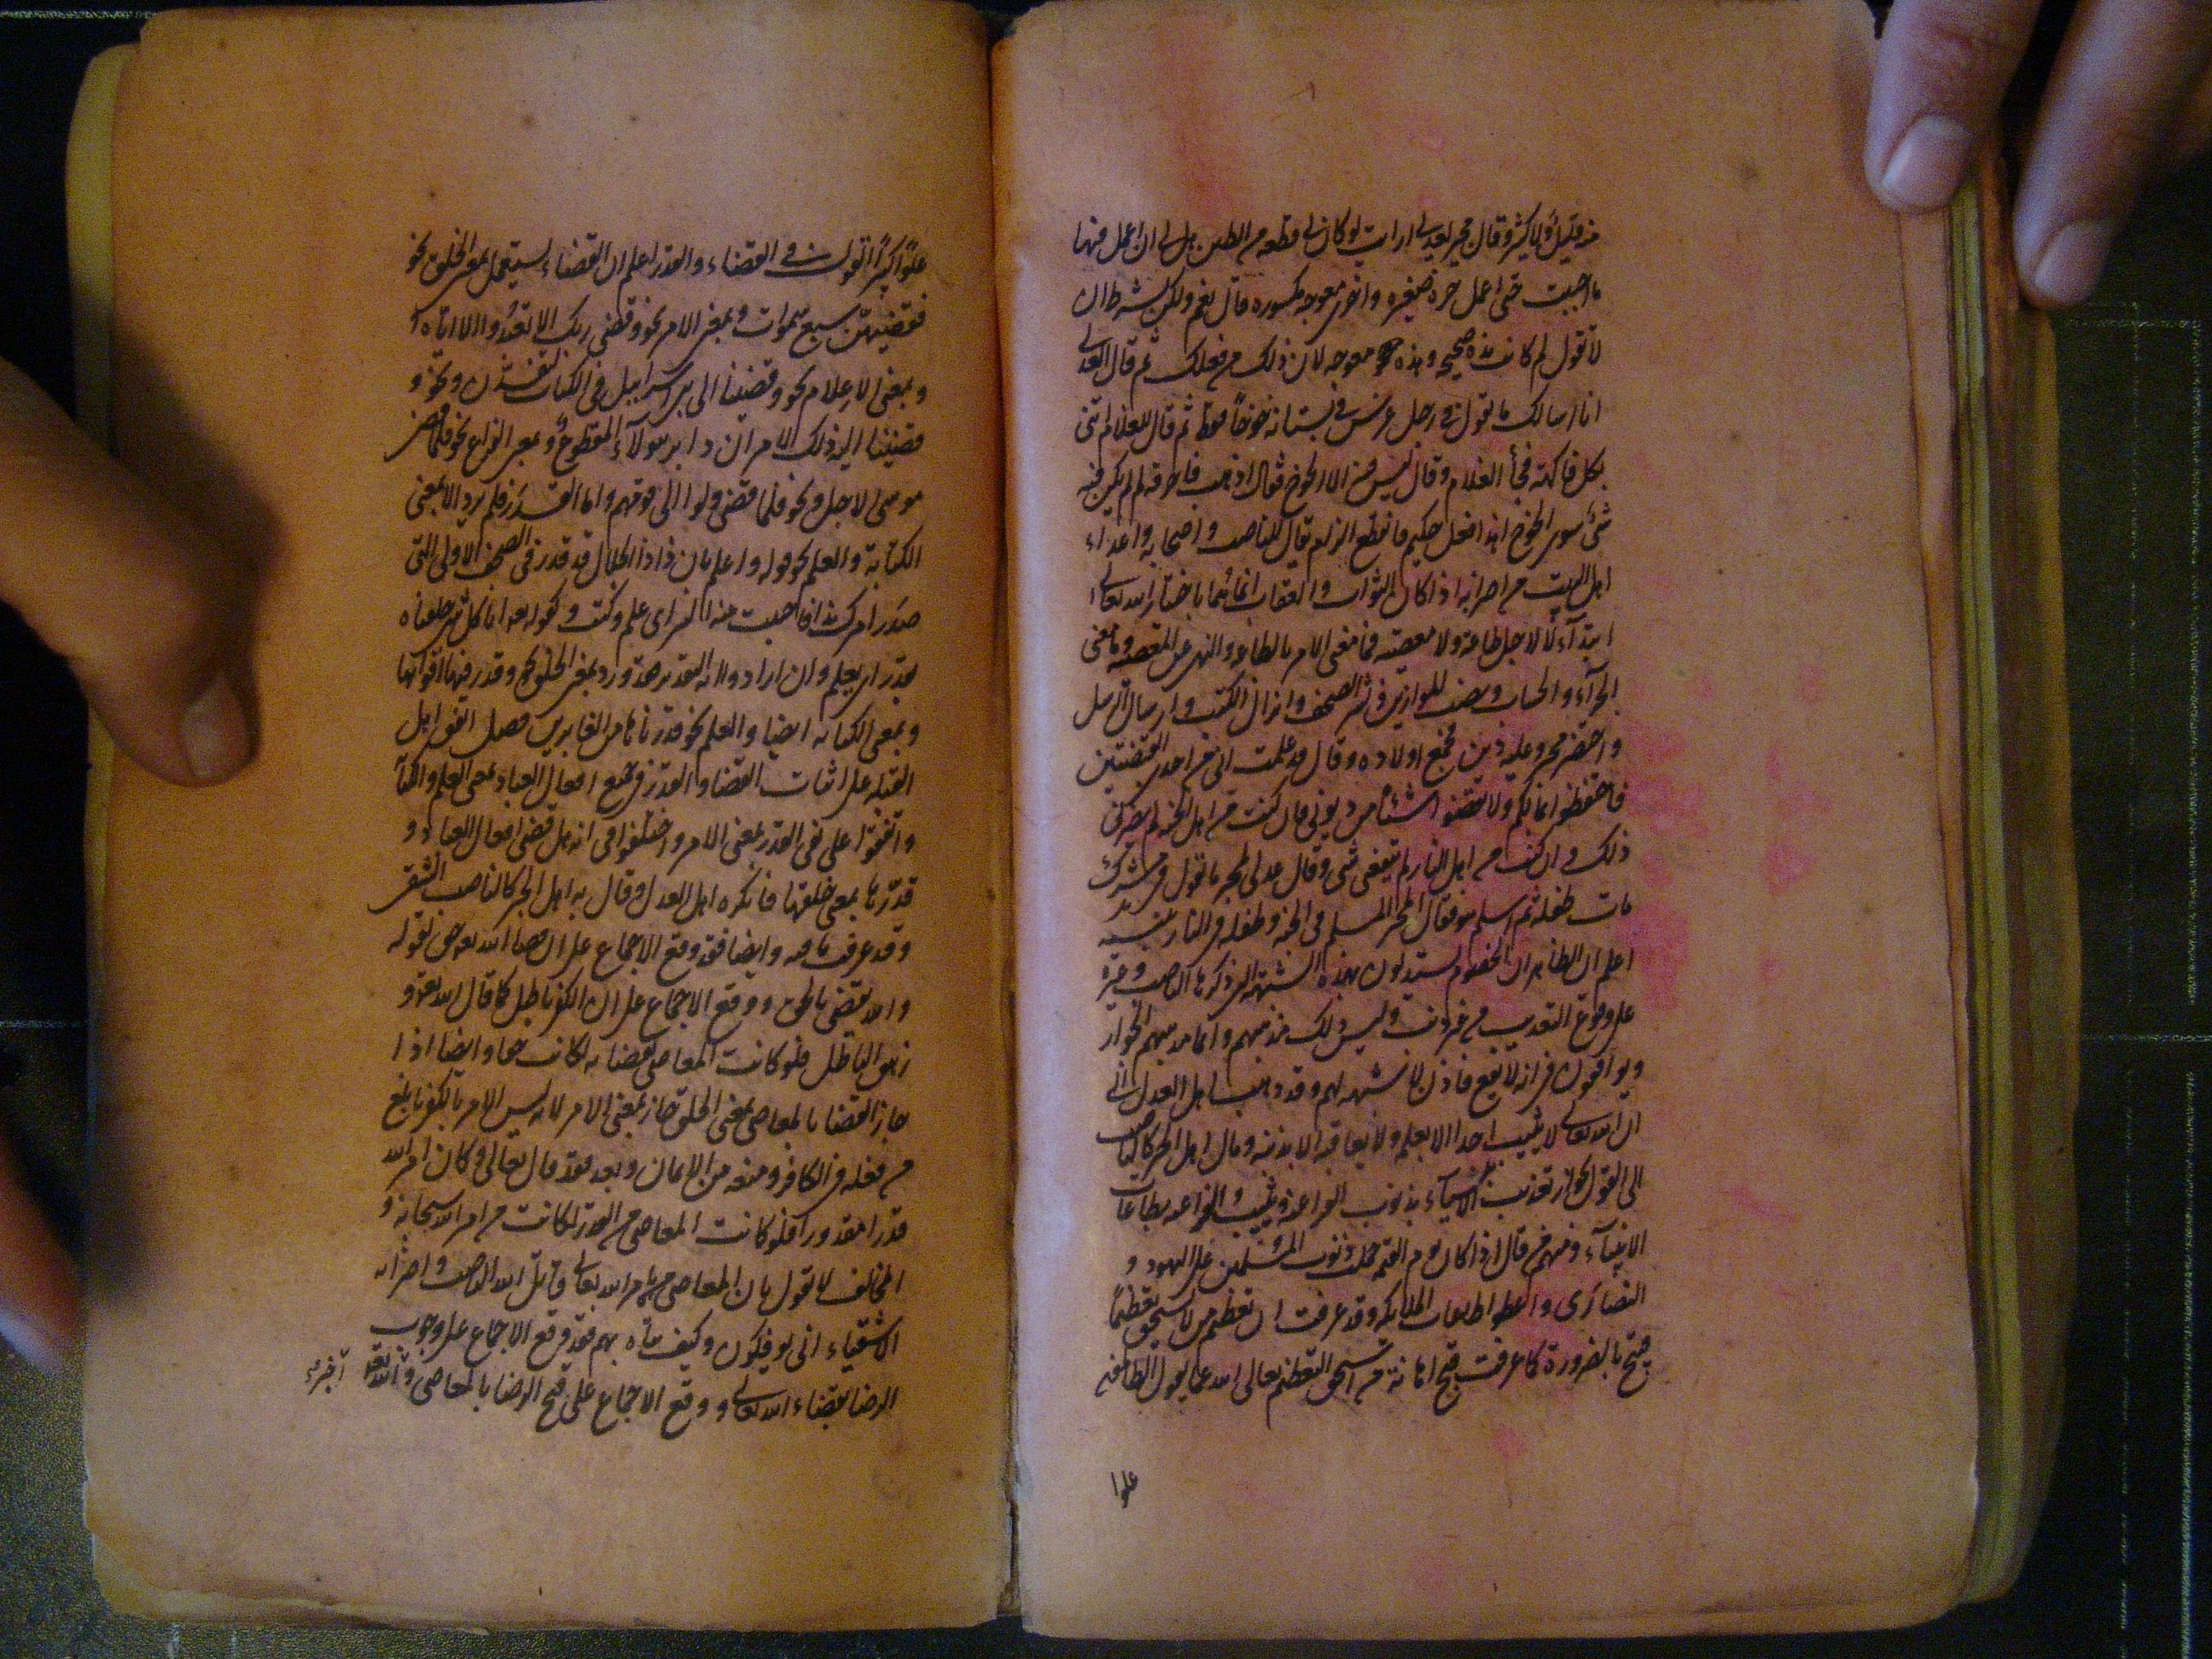 من قليل ولا كثير وقال مجبر لعدلي ارايت لو كان لي قطعه من الطين هل لي ان اعمل فيها
ما احببت حتى اعمل جره صغيره واخرى معوجه مكسوره قال نعم ولكن بشرط ان
لا تقول لم كانت هذه صحيحه وهذه معوجه لان ذلك من فعلك ثم قال العدلي
انا اسالك ما تقول في رجل غرس في بستانه خوخا فقط ثم قال للغلام ائتني
بكل فاكهة فجأ الغلام وقال ليس فيه الا الخوخ فقال اذهب فاحرقه لم لم يكن فيه
شئ سوى الخوخ اهذا فعل حكيم فانقطع الزام يقال للناصب واصحابه واعداء
اهل البيت من احزابه اذا كان الثواب والعقاب انما هما باختيار الله تعالى
ابتداء لا لاجل طاعة ولا معصية فما معنى الامر بالطاعه والنهي عن المعصيه وما معنى
الجزآء والحساب ونصب الموازين ونشر الصحف وانزال الكتب وارسال الرسل
واحتضر مجبر وعليه دين فجمع اولاده وقال قد علمت اني من احدى القبضتين
فاحفظوا مالكم ولا تقضوا شئا من ديوني فان كنت من اهل الجنه لم يضرني
ذلك وان كنت من اهل النار لم ينفعني شي وقال عدلي لمجبر ما تقول في مشرك
مات طفله ثم اسلم هو فقال المجبر المسلم في الجنه وطفله في النار تنبيه
اعلم ان الظاهر ان الخصوم يستدلون بهذه الشبهة التي ذكرها الناصب وغيره
على وقوع التعذيب من غير ذنب وليس ذلك مذهبهم وانما مذهبهم الجواز
ويوافقون في انه لا يقع فاذن لا شبهه لهم وقد ذهب اهل العدل الى
ان الله تعالى لا يثيب احدا الا بعمله ولا يعاقبه الا بذنبه ومال اهل الجبر كالناصب
الى القول بجواز تعذيب الانبيآء بذنوب الفراعنه ويثيب الفراعنه بطاعات
الانبيآء ومنهم من قال اذا كان يوم القيمه حملت ذنوب المسلمين على اليهود و
النصارى واعطوا طاعات الملائكه وقد عرفت ان تعظيم من لا يستحق تعظيما
قبيح بالضرورة كما عرفت قبح اهانة من استحق التعظيم تعالى الله عما يقول الظالمون
علوا
علوا كبيرا القول في القضاء والقدر اعلم ان القضاء يستعمل بمعنى الخلق نحو
فقضيهن سبع سموات وبمعنى الامر نحو وقضى ربك الا تعبدوا الا اياه
وبمعنى الاعلام نحو وقضينا الى بني اسرائيل في الكتاب لتفسدن ونحو و
قضينا اليه ذلك الامر ان دابر هولآء مقطوع وبمعنى الفراغ نحو فلما قضى
موسى الاجل ونحو فلما قضى ولوا الى قومهم واما القدر فلم يرد الا بمعنى
الكتابة والعلم نحو قوله واعلم بان ذا الجلال قد قدر في الصحف الاولى التي
امرك هذا فاجتنب منه اي علم وكتب ونحو قوله انا كل شي خلقناه
بقدر اي بعلم وان اراد والا له التقدير فقد ورد بمعنى الخلق نحو وقدر فيها اقواتها
وبمعنى الكتابه ايضا والعلم نحو قدرناها من الغابرين فصل اتفق اهل
القبله على اثبات القضا والقدر في جميع افعال العباد بمعنى العلم والكتابة
واتفقوا على نفي القدر بمعنى الامر واختلفوا في انه هل قضى افعال العباد و
قدرها بمعنى خلقها فانكره اهل العدل وقال به اهل الجبر كالناصب الشقي
وقد عرفت ما فيه وايضا فقد وقع الاجماع على ان قضا الله تعالى حق لقوله
والله يقضي بالحق ووقع الاجماع على ان الكفر باطل كما قال الله تعالى و
زهق الباطل فلو كانت المعاصي بقضائه لكانت حقا وايضا اذا
جاز القضا بالمعاصي بمعنى الخلق جاز بمعنى الامر لانه ليس الامر بالكفر بابلغ
من فعله في الكافر ومنعه من الايمان وبعد فقد قال تعالى وكان امر الله
قدرا مقدورا فلو كانت المعاصي من القدر لكانت من امر الله سبحانه و
المخالف لا يقول بان المعاصي من امر الله تعالى قاتل الله الناصب واحزابه
الاشقياء انى يوفكون وكيف بهم فقد وقع الاجماع على وجوب
الرضا بقضاء الله تعالى ووقع الاجماع على قبح الرضا بالمعاصي